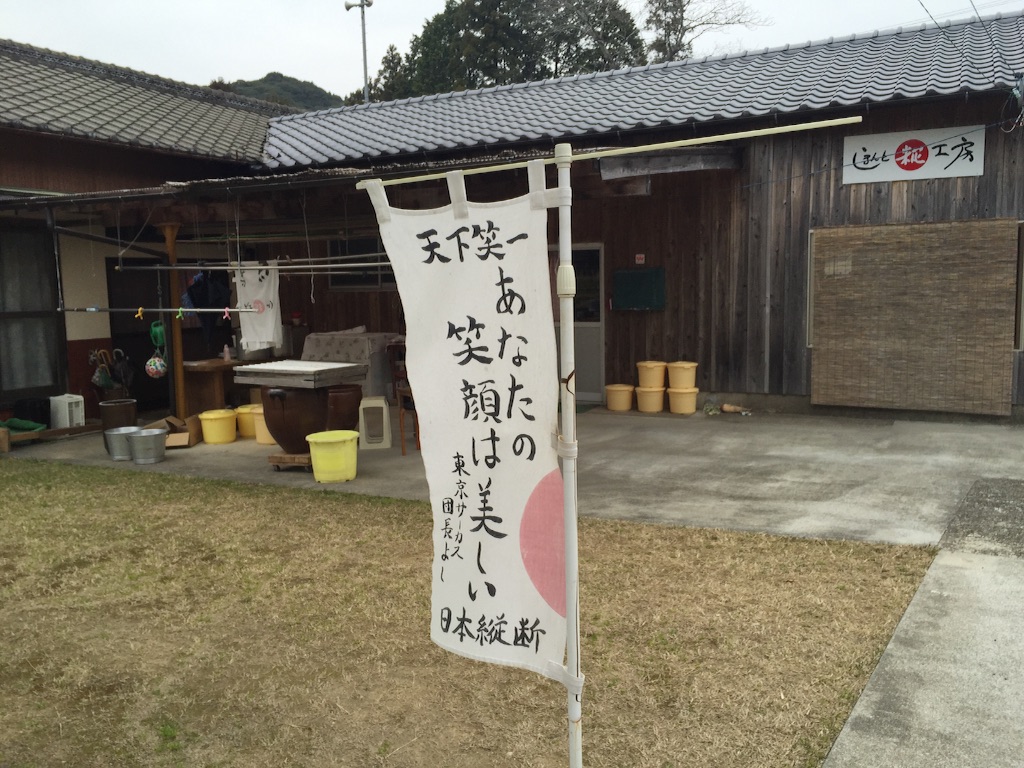 天下笑一
あなたの
笑顔は美しい
東京サーカス
団長よし
日本縦断
しまんと糀工房